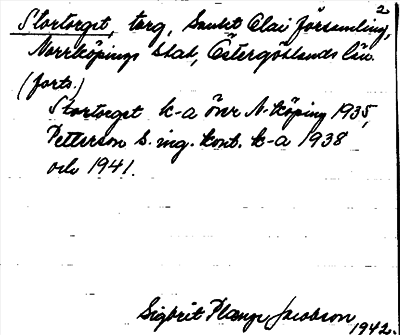 2
Stortorget, torg, Sankt Olai församling,
Norrköpings stad, Östergötlands län.
(forts.)
Stortorget k-a över N-köping 1935,
Petterson S. ing. kont. k-a 1938
och 1941.
Sigbrit Plænge Jacobson
1942.